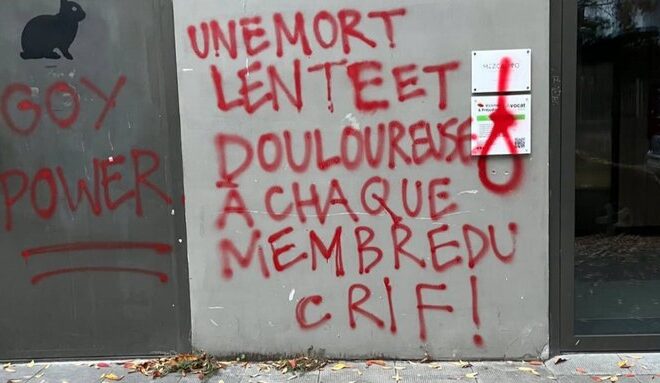 GOY
POWER
UNE MORT
LENTE ET
DOULOUREUSE
À CHAQUE
MEMBRE DU
CRIF !